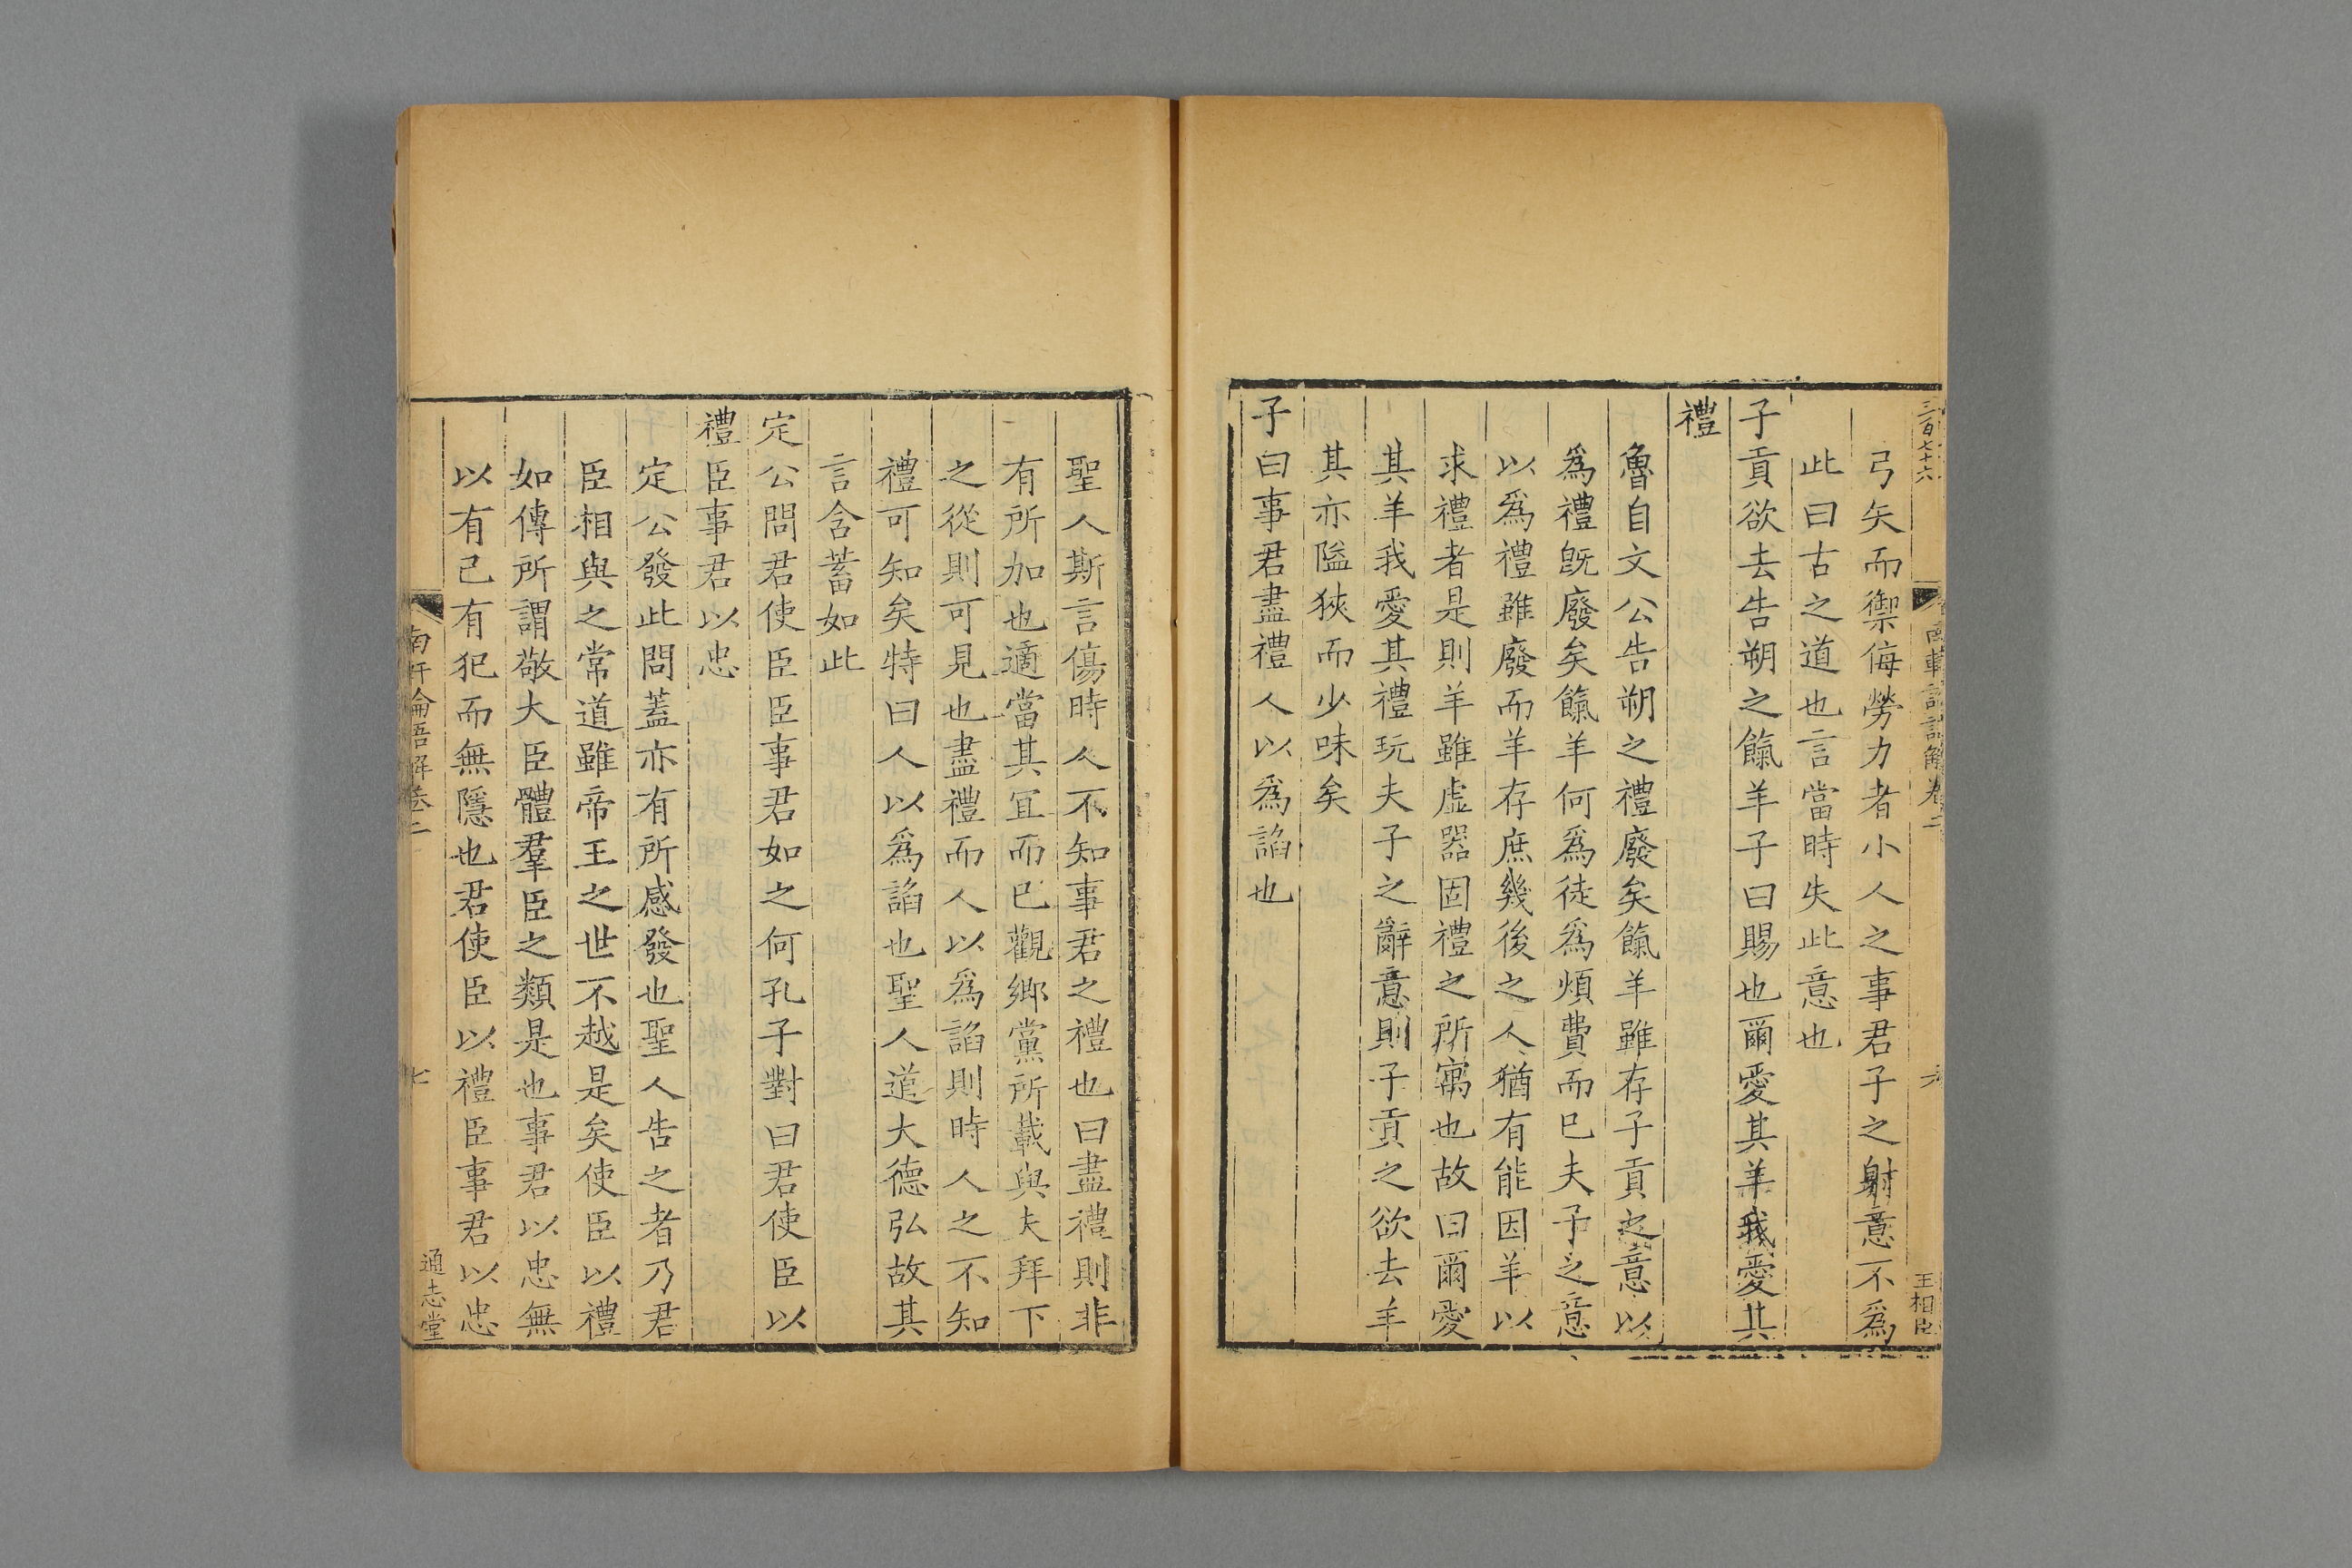 三百七十六
南軒論語解卷二
六
王相臣
弓矢而禦侮勞力者小人之事君子之射意不爲
此曰古之道也言當時失此意也
子貢欲去告朔之餼羊子曰賜也爾愛其羊我愛其
禮
魯自文公告朔之禮廢矣餼羊雖存子貢之意以
爲禮旣廢矣餼羊何爲徒爲煩費而已夫子之意
以爲禮雖廢而羊存庶幾後之人猶有能因羊以
求禮者是則羊雖虛器固禮之所寓也故曰爾愛
其羊我愛其禮玩夫子之辭意則子貢之欲去羊
其亦隘狹而少味矣
子曰事君盡禮人以爲諂也
聖人斯言傷時人不知事君之禮也曰盡禮則非
有所加也適當其宜而已觀鄉黨所載與夫拜下
之從則可見也盡禮而人以爲諂則時人之不知
禮可知矣特曰人以爲諂也聖人道大德弘故其
言含蓄如此
定公問君使臣臣事君如之何孔子對曰君使臣以
禮臣事君以忠
定公發此問蓋亦有所感發也聖人告之者乃君
臣相與之常道雖帝王之世不越是矣使臣以禮
如傳所謂敬大臣體羣臣之類是也事君以忠無
以有己有犯而無隱也君使臣以禮臣事君以忠
南軒論語解卷二
七
通志堂